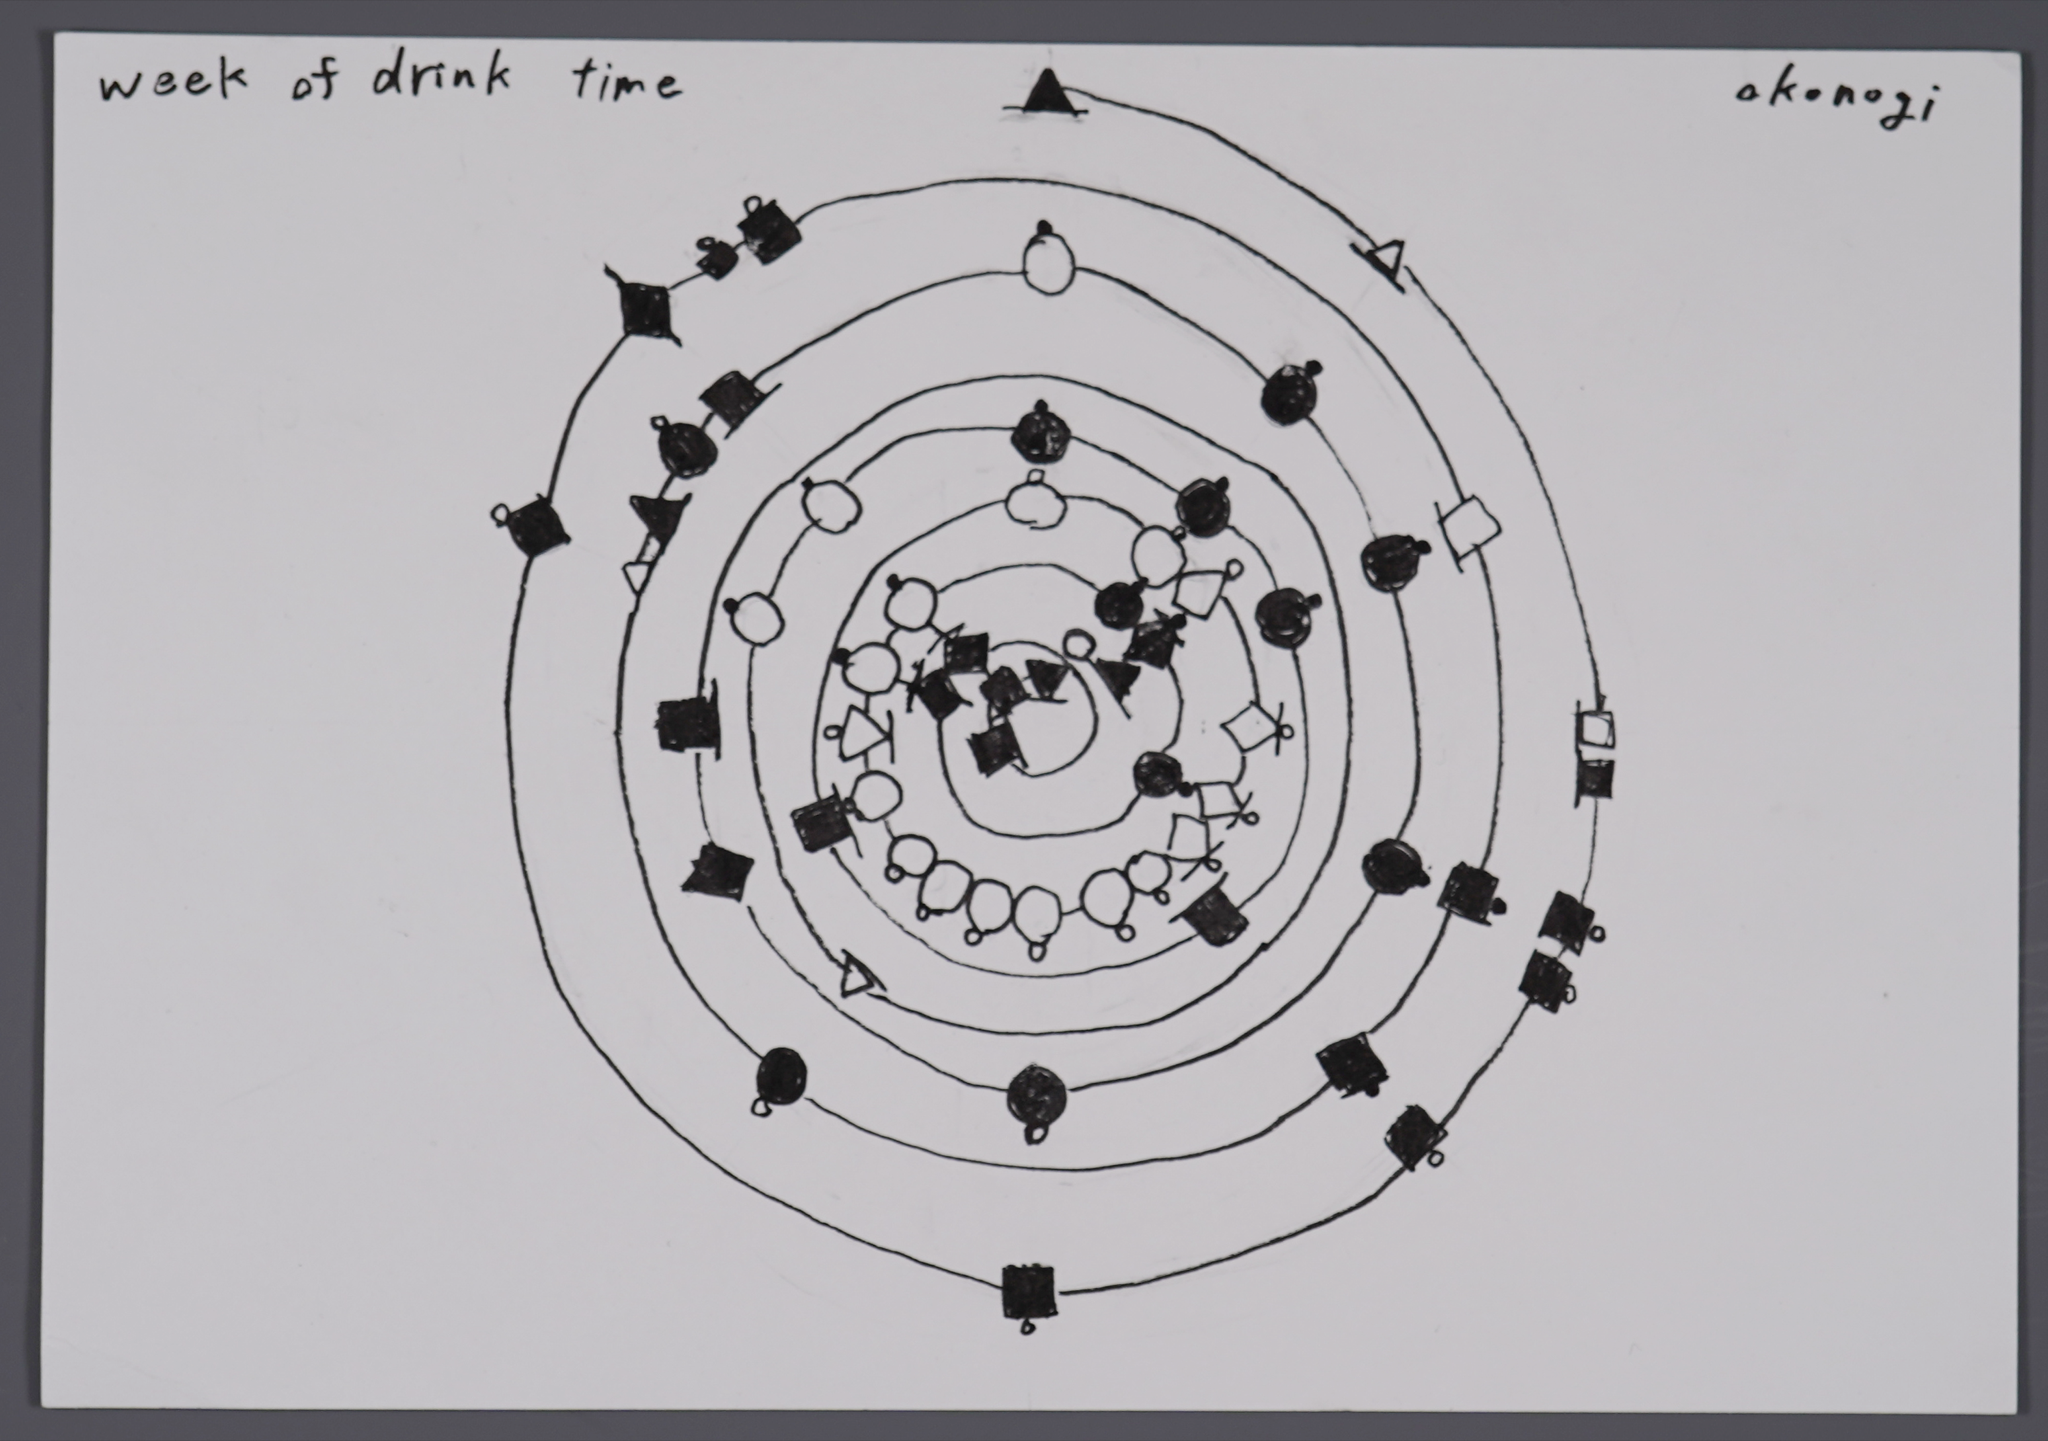 week of drink time
okonogi